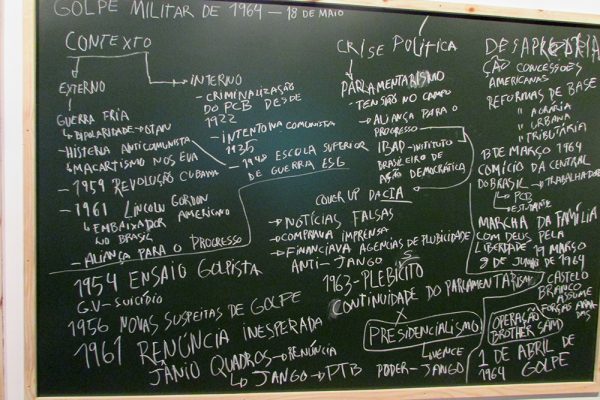 GOLPE MILITAR DE 1964 - 18 DE MAIO
CONTEXTO
EXTERNO
GUERRA FRIA
↳ BIPOLARIDADE → OTAN
- HISTERIA ANTICOMUNISTA
↳ MACARTISMO NOS EUA
- 1959 REVOLUÇÃO CUBANA
- 1961 LINCOLN GORDON
↳ EMBAIXADOR AMERICANO
NO BRASIL
- ALIANÇA PARA O PROGRESSO
→ INTERNO
- CRIMINALIZAÇÃO
DO PCB DESDE
1922
- INTENTONA COMUNISTA
1935
- 1948 ESCOLA SUPERIOR
DE GUERRA ESG
1954 ENSAIO GOLPISTA
G.V - SUICÍDIO
1956 NOVAS SUSPEITAS DE GOLPE
1961 RENÚNCIA INESPERADA
JÂNIO QUADROS → RENÚNCIA
↳ JANGO → PTB
CRISE POLÍTICA
PARLAMENTARISMO
- TENSÃO NO CAMPO
- ALIANÇA PARA O
PROGRESSO
IBAD - INSTITUTO
BRASILEIRO DE
AÇÃO DEMOCRÁTICA
COVER UP DA CIA
→ NOTÍCIAS FALSAS
- COMPRAVA IMPRENSA
- FINANCIAVA AGÊNCIAS DE PUBLICIDADE
ANTI-JANGO
1963 - PLEBICITO
CONTINUIDADE DO PARLAMENTARISMO
X
PRESIDENCIALISMO
↳ VENCE
PODER - JANGO
ÇÃO CONCESSÕES
AMERICANAS
REFORMAS DE BASE
" AGRÁRIA
" URBANA
" TRIBUTÁRIA
13 DE MARÇO 1964
COMÍCIO DA CENTRAL
DO BRASIL → TRABALHADOR
↳ PCB
↳ ESTUDANTE
MARCHA DA FAMÍLIA
COM DEUS PELA
LIBERDADE 19 MARÇO
DE 1964
CASTELO
BRANCO
ASSUME
FORÇAS ARMADAS
OPERAÇÃO
BROTHER SAM
1 DE ABRIL DE
1964 GOLPE